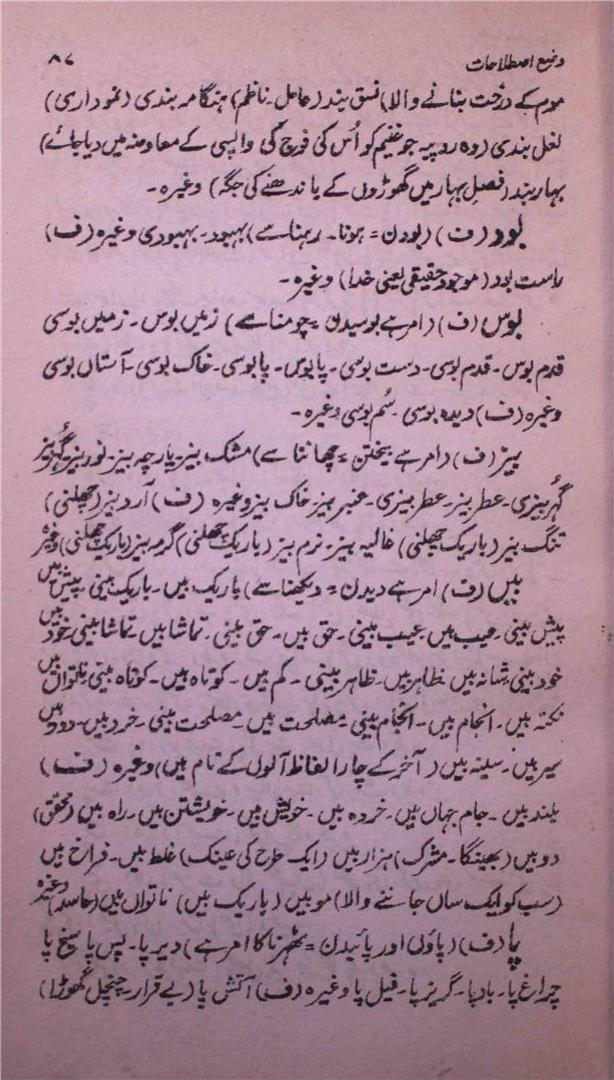 وضع اصطلاحات ۸۷
موم کے درخت بنانے والا) نسق بند (عامل۔ ناظم) ہنگامہ بندی (نموداری)
نعل بندی (وہ روپیہ جو غنیم کو اُس کی فوج کی واپسی کے معاوضہ میں دیا جائے)
بہار بند (فصل بہار میں گھوڑوں کے باندھنے کی جگہ) وغیرہ۔
بود (ف) (بودن = ہونا۔ رہنا سے) بہبود۔ بہبودی وغیرہ (ف)
راست بود (موجود حقیقی یعنی خدا) وغیرہ۔
بوس (ف) (امر ہے بوسیدن = چومنا سے) زمیں بوس۔ زمیں بوسی
قدم بوس۔ قدم بوسی۔ دست بوسی۔ پابوس۔ پابوسی۔ خاک بوسی۔ آستاں بوسی
وغیرہ (ف) دیدہ بوسی۔ سُم بوسی وغیرہ۔
بیز (ف) (امر ہے بیختن = چھاننا سے) مشک بیز۔ پارچہ بیز۔ نور بیز۔ گُہر بیز
گُہر بیزی۔ عطر بیز۔ عطر بیزی۔ عنبر بیز خاک بیز وغیرہ (ف) آرد بیز (چھلنی)
تنگ بیز (باریک چھلنی) غالیہ بیز۔ نرم بیز (باریک چھلنی) گرمہ بیز (باریک چھلنی) وغیرہ
بیں (ف) امر ہے دیدن = دیکھنا سے) باریک بیں۔ باریک بینی۔ پیش بیں
پیش بینی۔ عیب بیں۔ عیب بینی۔ حق بیں۔ حق بینی۔ تماشا بیں۔ تماشا بینی خود بیں
خود بینی شانہ بیں۔ ظاہر بیں۔ ظاہر بینی۔ کم بیں۔ کوتاہ بیں۔ کوتاہ بینی ناتواں بیں
نکتہ بیں۔ انجام بیں۔ انجام بینی۔ مصلحت بیں۔ مصلحت بینی۔ خرد بیں۔ دور بیں
سیر بیں۔ سینہ بیں (آخر کے چار الفاظ آلوں کے نام ہیں) وغیرہ (ف)
بلند بیں۔ جام جہاں بیں۔ خردہ بیں۔ خویش بیں۔ خویشتن بیں۔ راہ بیں (محقق)
دو بیں (بھینگا۔ مشرک) ہزار بیں (ایک طرح کی عینک) غلط بیں۔ فراخ بیں
(سب کو ایک ساں جاننے والا) موبیں (باریک بیں) ناتواں بیں (حاسد) وغیرہ
پا (ف) (پاؤں اور پائیدن = ٹھہرنا کا امر ہے) دیر پا۔ پس پا سیخ پا
چراغ پا۔ باد پا۔ گریز پا۔ فیل پا وغیرہ (ف) آتش پا (بے قرار۔ چنچل گھوڑا)